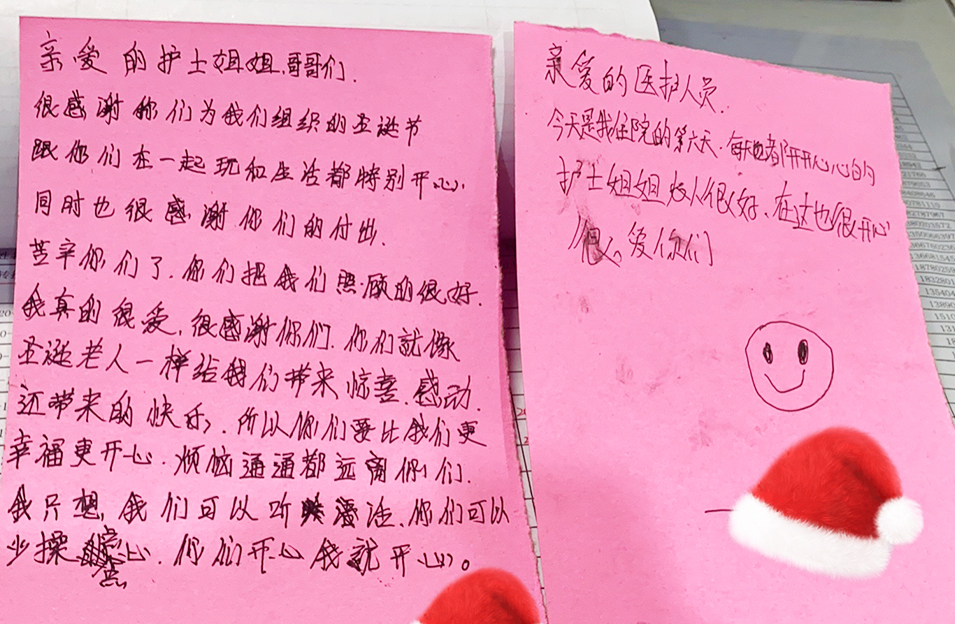 亲爱的护士姐姐,哥哥们.
很感谢你们为我们组织的圣诞节
跟你们在一起玩和生活都特别开心,
同时也很感谢你们的付出.
苦辛你们了.你们把我们照顾的很好.
我真的很爱,很感谢你们.你们就像
圣诞老人一样给我们带来惊喜.感动.
还带来的快乐,所以你们要比我们更
幸福更开心.烦恼通通都远离你们.
我只想,我们可以听话.你们可以
少操点心.你们开心我就开心。
亲爱的医护人员.
今天是我住院的第六天.每天都开开心心的
护士姐姐人很好、在这也很开心
很爱你们